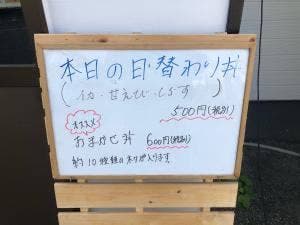 本日の日替わり丼
(イカ・甘えび・しらす)
500円(税別)
オススメ
おまかせ丼 600円(税別)
約10種類のネタが入ります